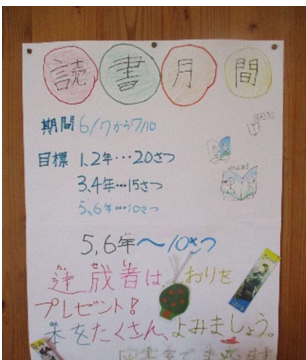 読書月間
期間 6/7から7/10
目標 1、2年…20さつ
3、4年…15さつ
5、6年…10さつ
5、6年～10さつ
達成者は おりを
プレゼント!
本をたくさん、よみましょう。
図書室で